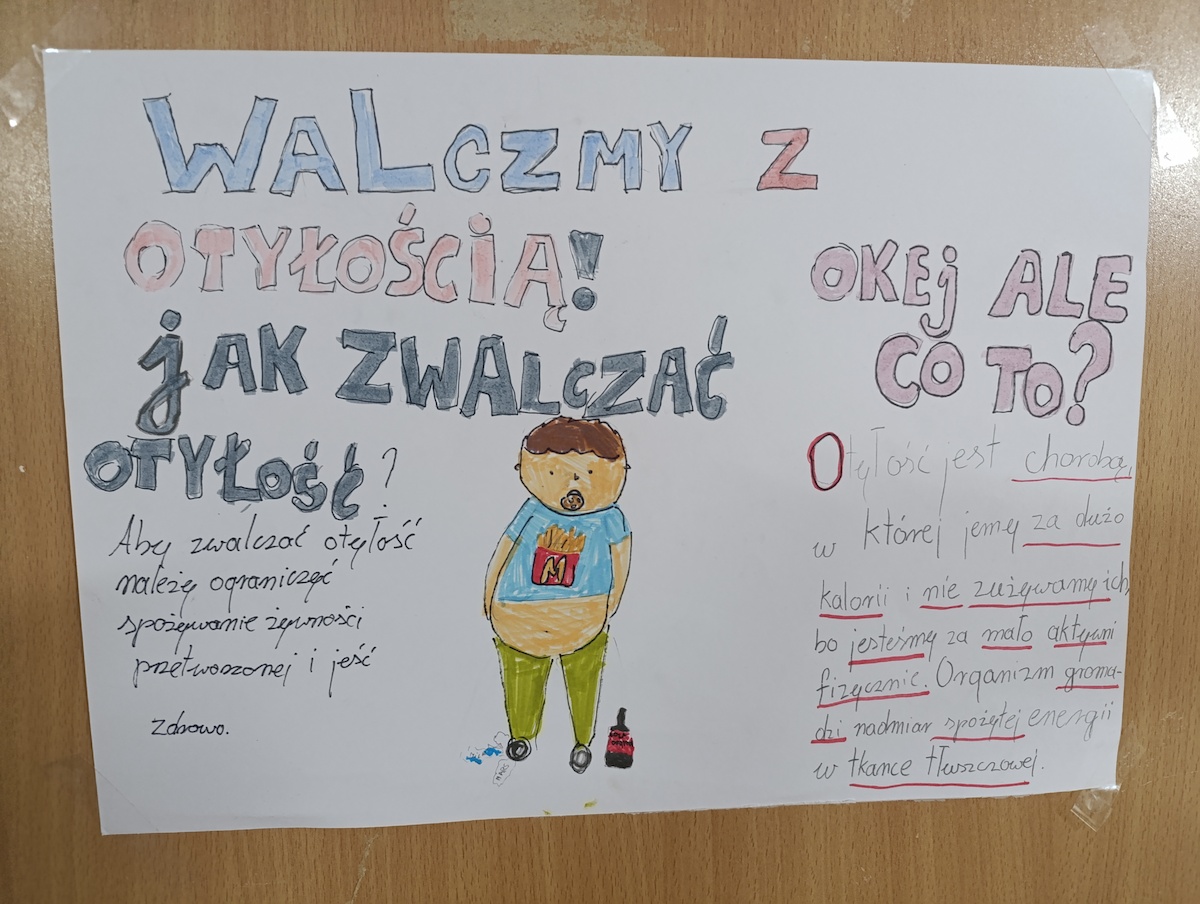 WALCZMY Z
OTYŁOŚCIĄ!
jAK ZWALCZAĆ
OTYŁOŚĆ?
Aby zwalczać otyłość
należy ograniczyć
spożywanie żywności
przetworzonej i jeść
zdrowo.
OKEj ALE
CO TO?
Otyłość jest chorobą,
w której jemy za dużo
kalorii i nie zużywamy ich,
bo jesteśmy za mało aktywni
fizycznie. Organizm groma-
dzi nadmiar spożytej energii
w tkance tłuszczowej.
M
MARS